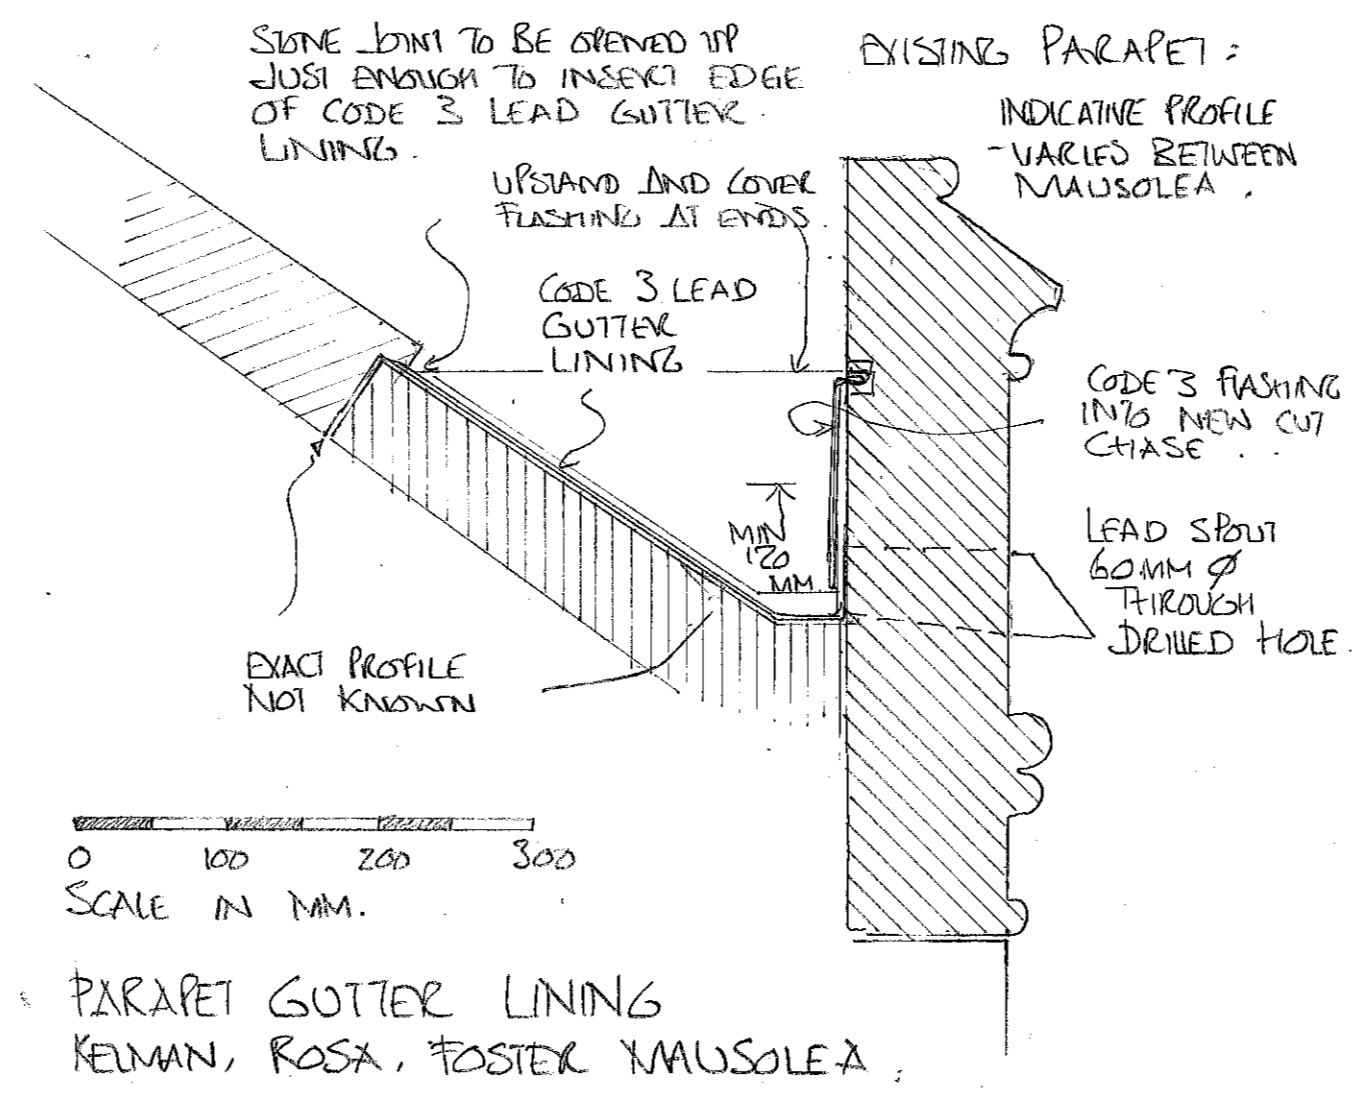 STONE JOINT TO BE OPENED UP
JUST ENOUGH TO INSERT EDGE
OF CODE 3 LEAD GUTTER
LINING.
EXISTING PARAPET:
INDICATIVE PROFILE
- VARIES BETWEEN
MAUSOLEA.
UPSTAND AND COVER
FLASHING AT ENDS.
CODE 3 LEAD
GUTTER
LINING
CODE 3 FLASHING
INTO NEW CUT
CHASE.
MIN
120
MM
LEAD SPOUT
60MM Ø
THROUGH
DRILLED HOLE.
EXACT PROFILE
NOT KNOWN
0 100 200 300
SCALE IN MM.
PARAPET GUTTER LINING
KELMAN, ROSA, FOSTER MAUSOLEA.